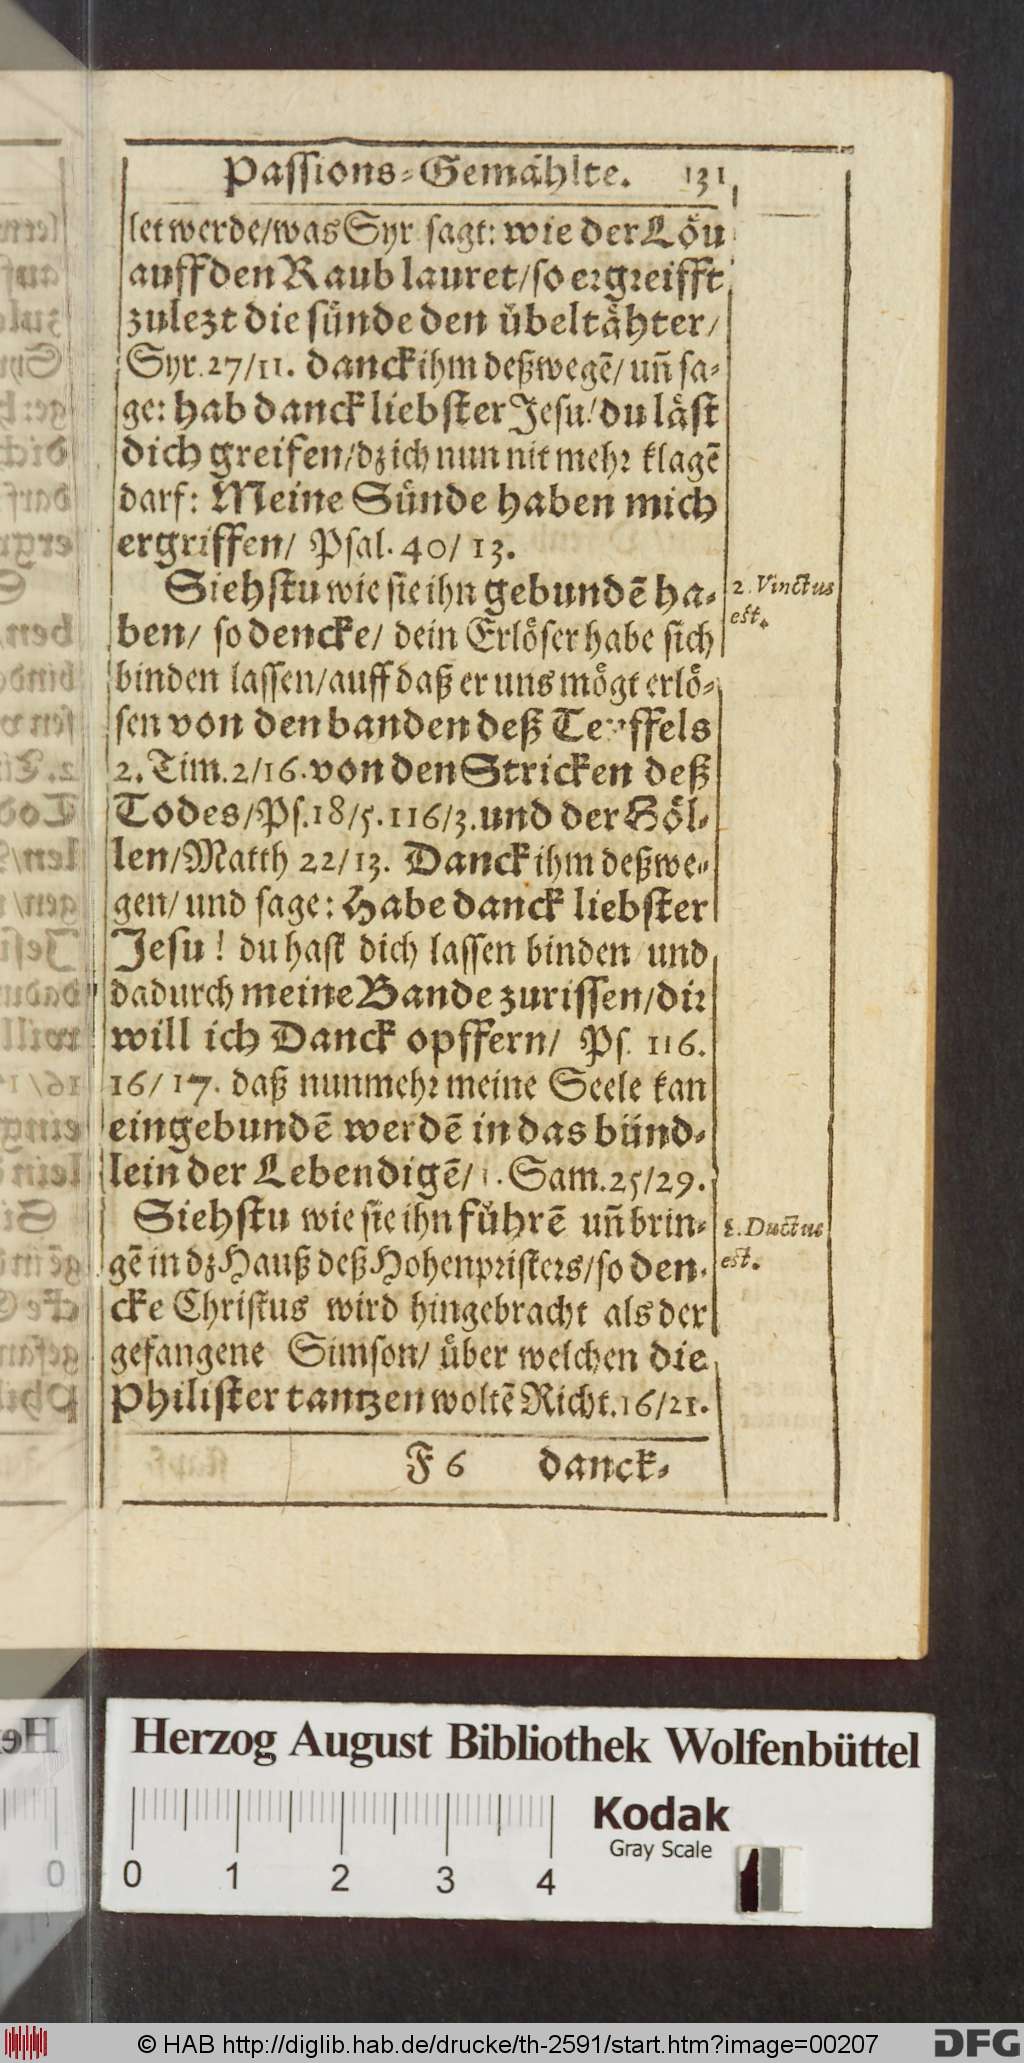 Passions-Gemählte. 131
let werde/was Syr sagt: wie der Löu
auff den Raub lauret/so ergreifft
zulezt die sünde den übeltähter/
Syr. 27/11. danck ihm deßwegē/ uñ sa-
ge: hab danck liebster Jesu! du läst
dich greifen/dz ich nun nit mehr klagē
darf: Meine Sünde haben mich
ergriffen/ Psal. 40/13.
Siehstu wie sie ihn gebundē ha-
2. Vinctus
est.
ben/ so dencke/ dein Erlöser habe sich
binden lassen/auff daß er uns mögt erlö-
sen von den banden deß Teyffels
2. Tim. 2/16. von den Stricken deß
Todes/Ps. 18/5. 116/3. und der Höl-
len/Matth 22/13. Danck ihm deßwe-
gen/ und sage: Habe danck liebster
Jesu! du hast dich lassen binden/und
dadurch meine Bande zurissen/dir
will ich Danck opffern/ Ps. 116.
16/17. daß nunmehr meine Seele kan
eingebundē werdē in das bünd-
lein der Lebendigē/1. Sam. 25/29.
Siehstu wie sie ihn führē uñ brin-
Ductus
est.
gē in dz Hauß deß Hohenpristers/so den-
cke Christus wird hingebracht als der
gefangene Simson/ über welchen die
Philister tantzen woltē Richt. 16/21.
F 6 danck-
Herzog August Bibliothek Wolfenbüttel
Kodak
Gray Scale
0 1 2 3 4
© HAB http://diglib.hab.de/drucke/th-2591/start.htm?image=00207
DFG